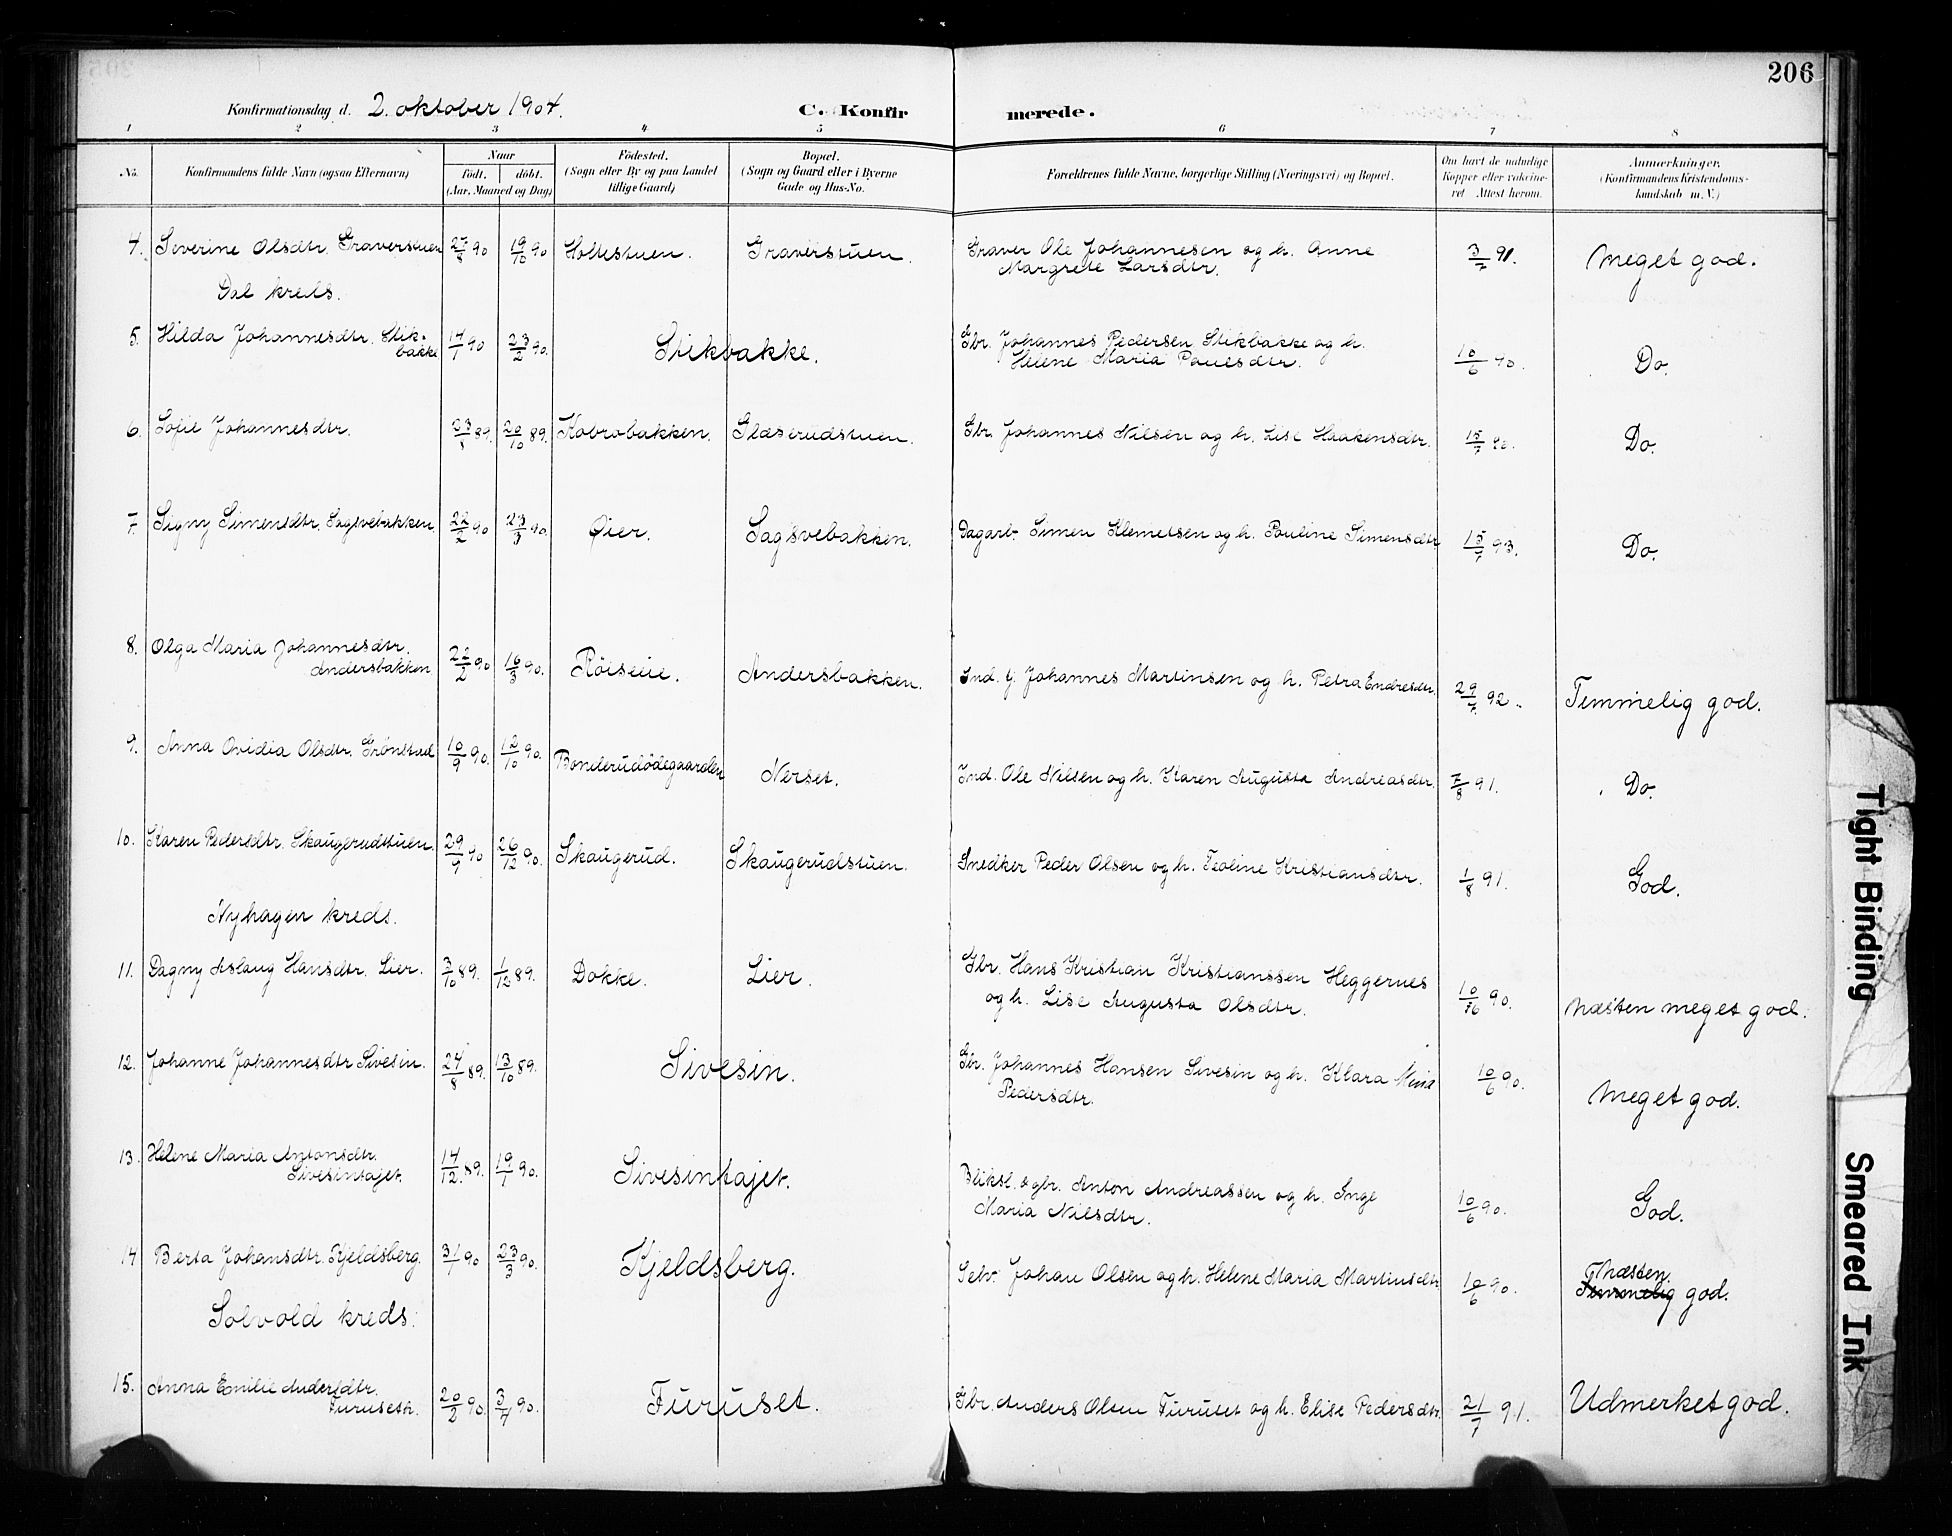 206
Konfirmationsdag d. 2. oktober 1904.
C. Konfirmerede.
1 2 3 4 5 6 7 8
No.
Konfirmandens fulde Navn (ogsaa Efternavn)
Naar
født. døbt.
(Aar, Maaned og Dag)
Fødested.
(Sogn eller By og paa Landet
tillige Gaard)
Bopæl.
(Sogn og Gaard eller i Byerne
Gade og Hus-No.
Forældrenes fulde Navne, borgerlige Stilling (Næringsvei) og Bopæl.
Om havt de naturlige
Kopper eller vakcine-
ret Attest herom.
Anmærkninger.
(Konfirmandens Kristendoms-
kundskab m. V.)
4. Severine Olsdtr. Graverstuen 27/8 90 19/10 90 Holtestuen. Graverstuen. Graver Ole Johannesen og h. Anne
Margrete Larsdtr. 3/7 91. Meget god.
Dal kreds.
5. Hilda Johannesdtr. Stik-
bakke 14/1 90 23/2 90. Stikbakke. Gbr. Johannes Pedersen Stikbakke og h.
Helene Maria Paulsdtr. 10/6 90. Do.
6. Sofie Johannesdtr. 23/8 89. 20/10 89. Kobrobakken. Glæserudstuen. Gbr. Johannes Nilsen og h. Lise Haakensdtr. 15/7 90. Do.
7. Signy Simensdtr. Sagsvebakken. 22/2 90 23/3 90. Øier. Sagsvebakken. Dagarb. Simen Klemetsen og h. Pauline Simensdtr 15/7 93. Do.
8. Olga Maria Johannesdtr.
Andersbakken 22/2 90 16/3 90. Röiseie. Andersbakken. Ind. Johannes Martinsen og h. Petra Endresdtr. 29/7 92. Temmelig god.
9. Anna Ovidia Olsdtr. Grönstad 10/9 90. 12/10 90. Bonderudödegaarden Nerset. Ind. Ole Nilsen og h. Karen Augusta Andreasdtr. 7/8 91. Do.
10. Karen Pedersdtr. Skaugerudstuen. 29/9 90 26/12 90. Skaugerud. Skaugerudstuen. Snedker Peder Olsen og h. Teoline Kristiansdtr. 1/8 91. God.
Nyhagen kreds.
11. Dagny Aslaug Hansdtr. Lier. 3/10 89. 1/12 89. Dokke. Lier. Gbr. Hans Kristian Kristianssen Heggernes
og h. Lise Augusta Olsdtr. 10/6 90. Næsten meget god.
12. Johanne Johannesdtr Sivesin. 24/8 89. 13/10 89. Sivesin. Gbr. Johannes Hansen Sivesin og h. Klara
Pedersdtr. 10/6 90. Meget god.
13. Helene Maria Antonsdtr.
Sivesintajet. 14/12 89. 19/1 90. Sivesintajet. Bliksl. og br. Anton Andreassen og h. Inge
Maria Nilsdtr. 10/6 90. God.
14 Berta Johansdtr. Kjeldsberg. 31/1 90 23/3 90. Kjeldsberg. Selv. Johan Olsen og h. Helene Maria Martinsdtr 10/6 90. Næsten
Temmelig god.
Solvold kreds.
15. Anna Emilie Andersdtr.
Furuseth. 20/2 90. 3/4 90. Furuset. Gbr. Anders Olsen Furuset og h. Elise Pedersdtr. 21/7 91. Udmerket god.
Tight Binding
Smeared Ink